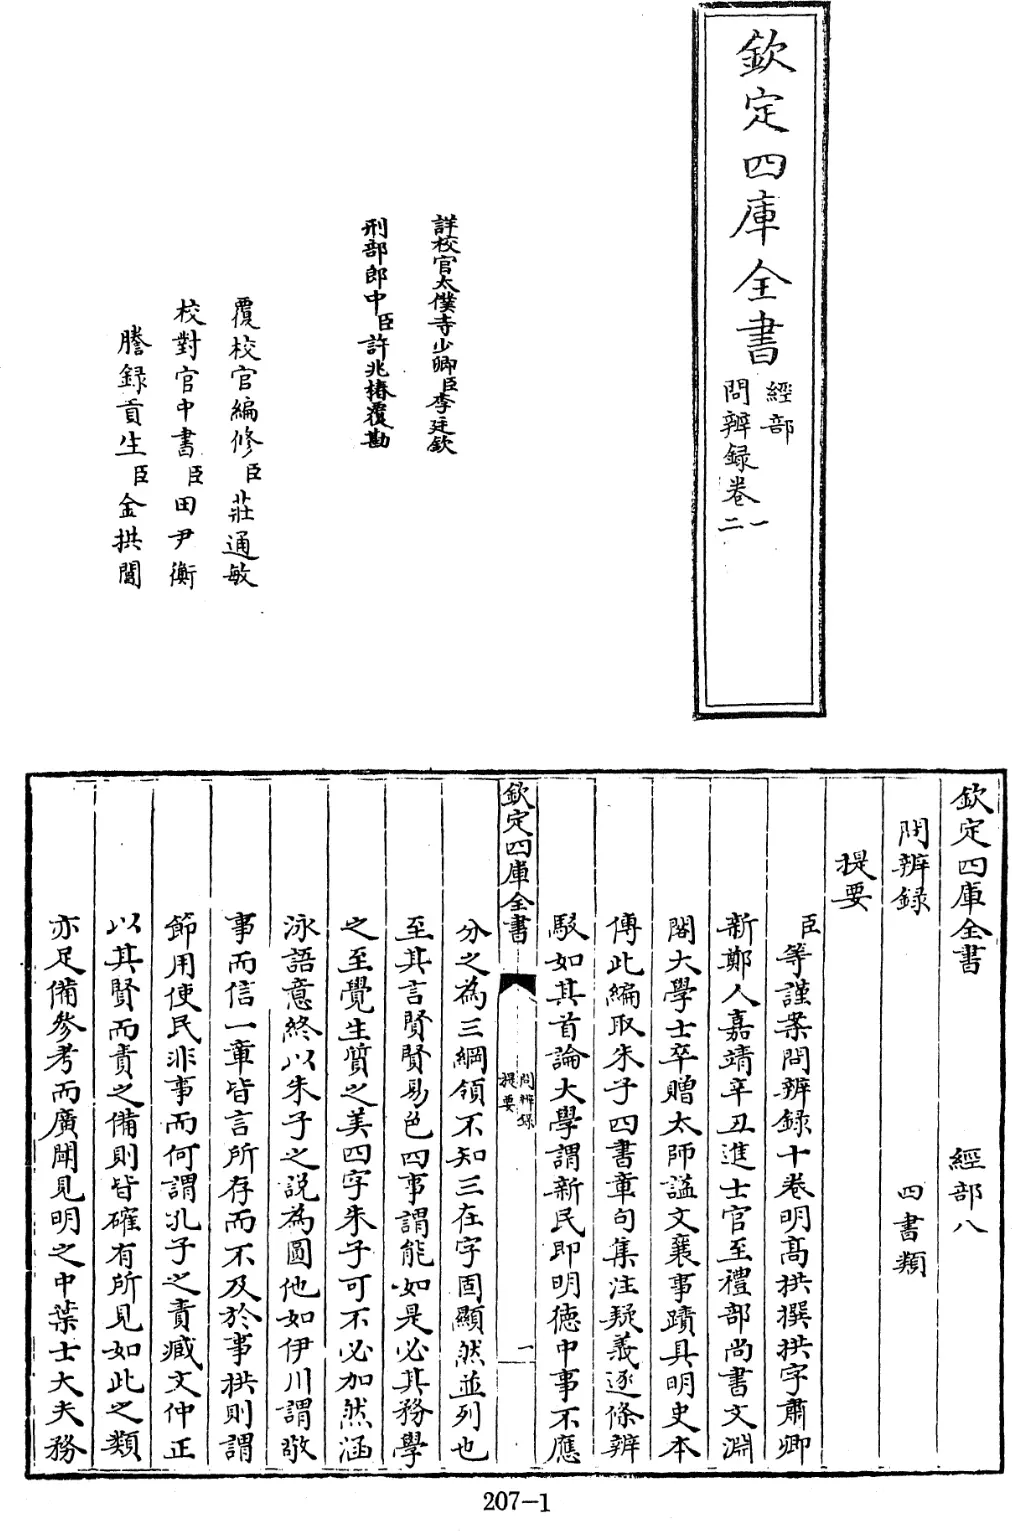 欽定四庫全書
經部
問辨録卷一
二
詳校官太僕寺少卿臣李廷欽
刑部郎中臣許兆椿覆勘
覆校官編修臣莊通敏
校對官中書臣田尹衡
謄録貢生臣金拱閶
欽定四庫全書 經部八
問辨録 四書類
提要
臣等謹案問辨録十卷明髙拱撰拱字肅卿
新鄭人嘉靖辛丑進士官至禮部尚書文淵
閣大學士卒贈太師諡文襄事蹟具明史本
傳此編取朱子四書章句集注疑義逐條辨
駁如其首論大學謂新民即明德中事不應
欽定四庫全書 問辨録 提要 一
分之為三綱領不知三在字固顯然並列也
至其言賢賢易色四事謂能如是必其務學
之至覺生質之美四字朱子可不必加然涵
泳語意終以朱子之説為圓他如伊川謂敬
事而信一章皆言所存而不及於事拱則謂
節用使民非事而何謂孔子之責臧文仲正
以其賢而責之備則皆確有所見如此之類
亦足備參考而廣聞見明之中葉士大夫務
207-1